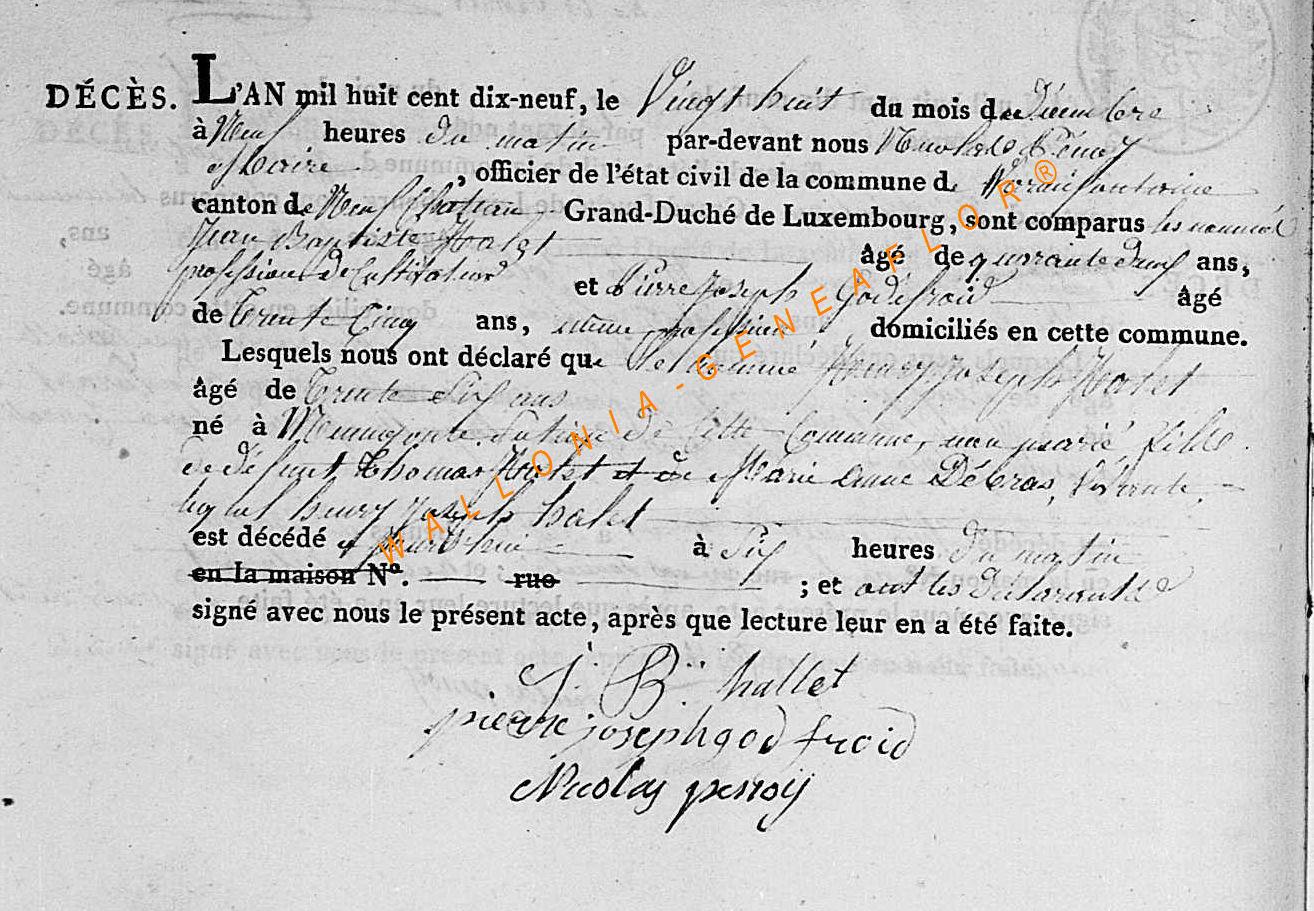 DÉCÈS. L'AN mil huit cent dix-neuf, le Vingt huit du mois de Décembre
à Neuf heures du matin par-devant nous Nicolas
Maire, officier de l'état civil de la commune de
canton de Neufchateau Grand-Duché de Luxembourg, sont comparus les nommés
Jean Baptiste Halet âgé de quarante deux ans,
profession de Cultivateur et Pierre Joseph Godefroid âgé
de Trente Cinq ans, même profession domiciliés en cette commune.
Lesquels nous ont déclaré que le nommé Henry Joseph Halet
âgé de Trente Six ans
né à de cette Commune, non marié, fils
de défunt Thomas Halet et de Marie Anne Débras, vivante,
lequel henry Joseph halet
est décédé à Six heures du matin
en la maison N°. rue ; et ont les déclarants
signé avec nous le présent acte, après que lecture leur en a été faite.
J. B. hallet
pierre joseph god froid
Nicolas
WALLONIA-GENEAFLOR®